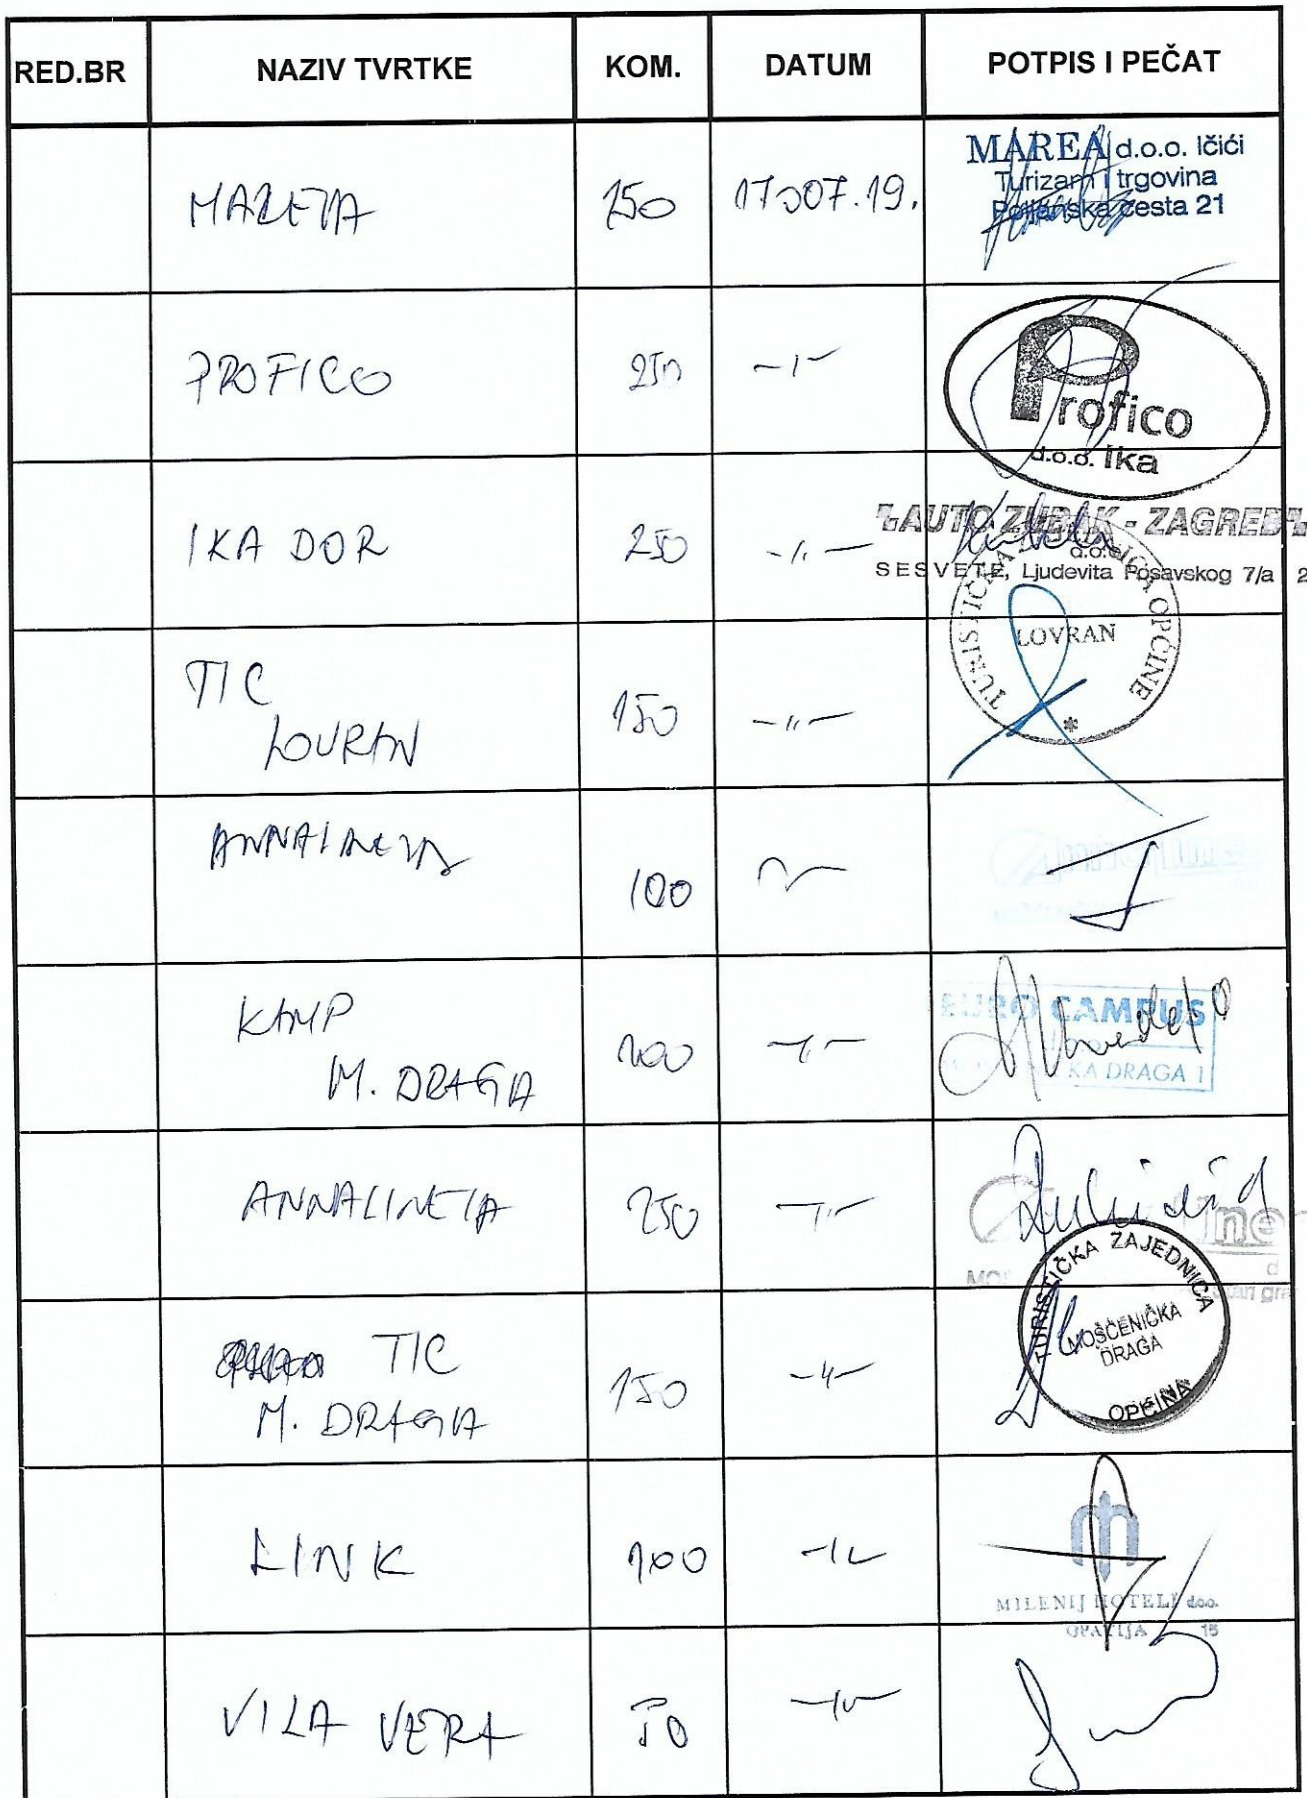 RED.BR NAZIV TVRTKE KOM. DATUM POTPIS I PEČAT
MAREA d.o.o. Ičići
Turizam i trgovina
Poljanska cesta 21
150 17.07.19.
PROFICO 250 -"-
Profico
d.o.o. Ika
IKA DOR 250 -"-
AUTO ZUBAK - ZAGREB
d.o.o.
SESVETE, Ljudevita Posavskog 7/a 2
TIC
LOVRAN
150 -"-
TURISTIČKA ZAJEDNICA OPĆINE
LOVRAN
100
KAMP
M. DRAGA
200 -"-
EURO CAMPUS
KA DRAGA 1
ANNALINEIA 250 -"-
line
TIC
M. DRAGA
150 -"-
TURISTIČKA ZAJEDNICA
MOŠĆENIČKA
DRAGA
OPĆINA
LINK 100 -"-
MILENIJ HOTELI doo.
OPATIJA 15
VILA VERA 50 -"-